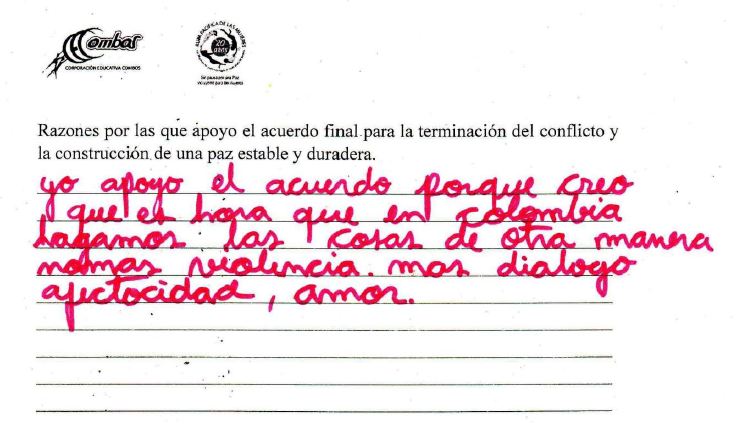 Combos
CORPORACIÓN EDUCATIVA COMBOS
RUTA PACIFICA DE LAS MUJERES
20
años
Razones por las que apoyo el acuerdo final para la terminación del conflicto y
la construcción de una paz estable y duradera.
yo apoyo el acuerdo porque creo
que es hora que en colombia
hagamos las cosas de otra manera
nomas violencia. mas dialogo
afectocidad, amor.